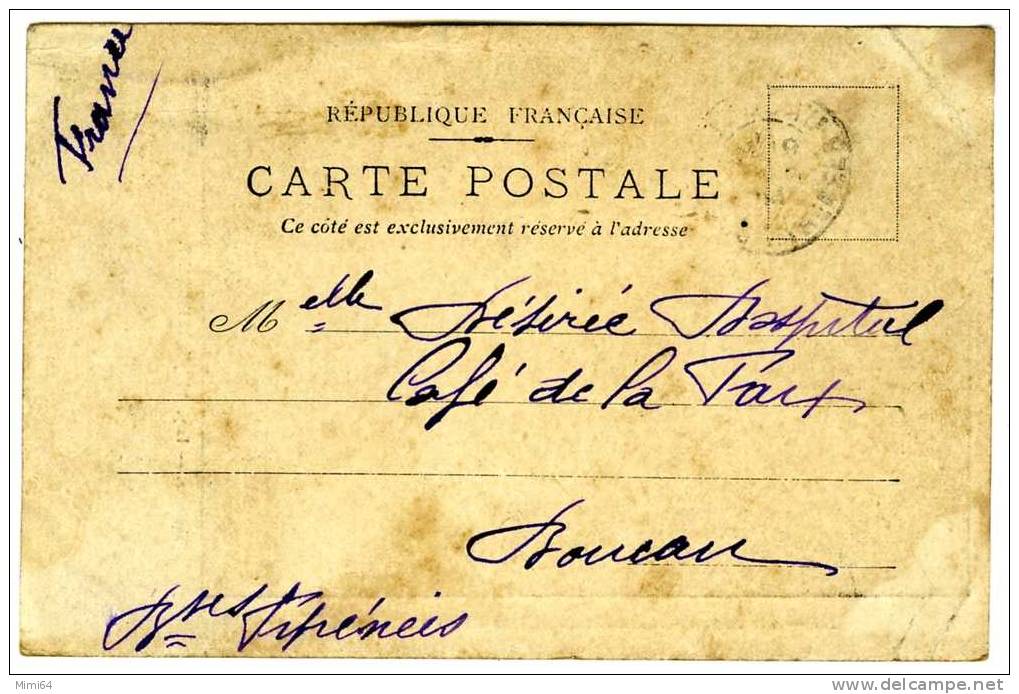 France
RÉPUBLIQUE FRANÇAISE
CARTE POSTALE
Ce côté est exclusivement réservé à l'adresse
Melle Désirée Hospital
Café de la Paix
Boucau
Bses Pyrénées
Mimi64
delcampe.net